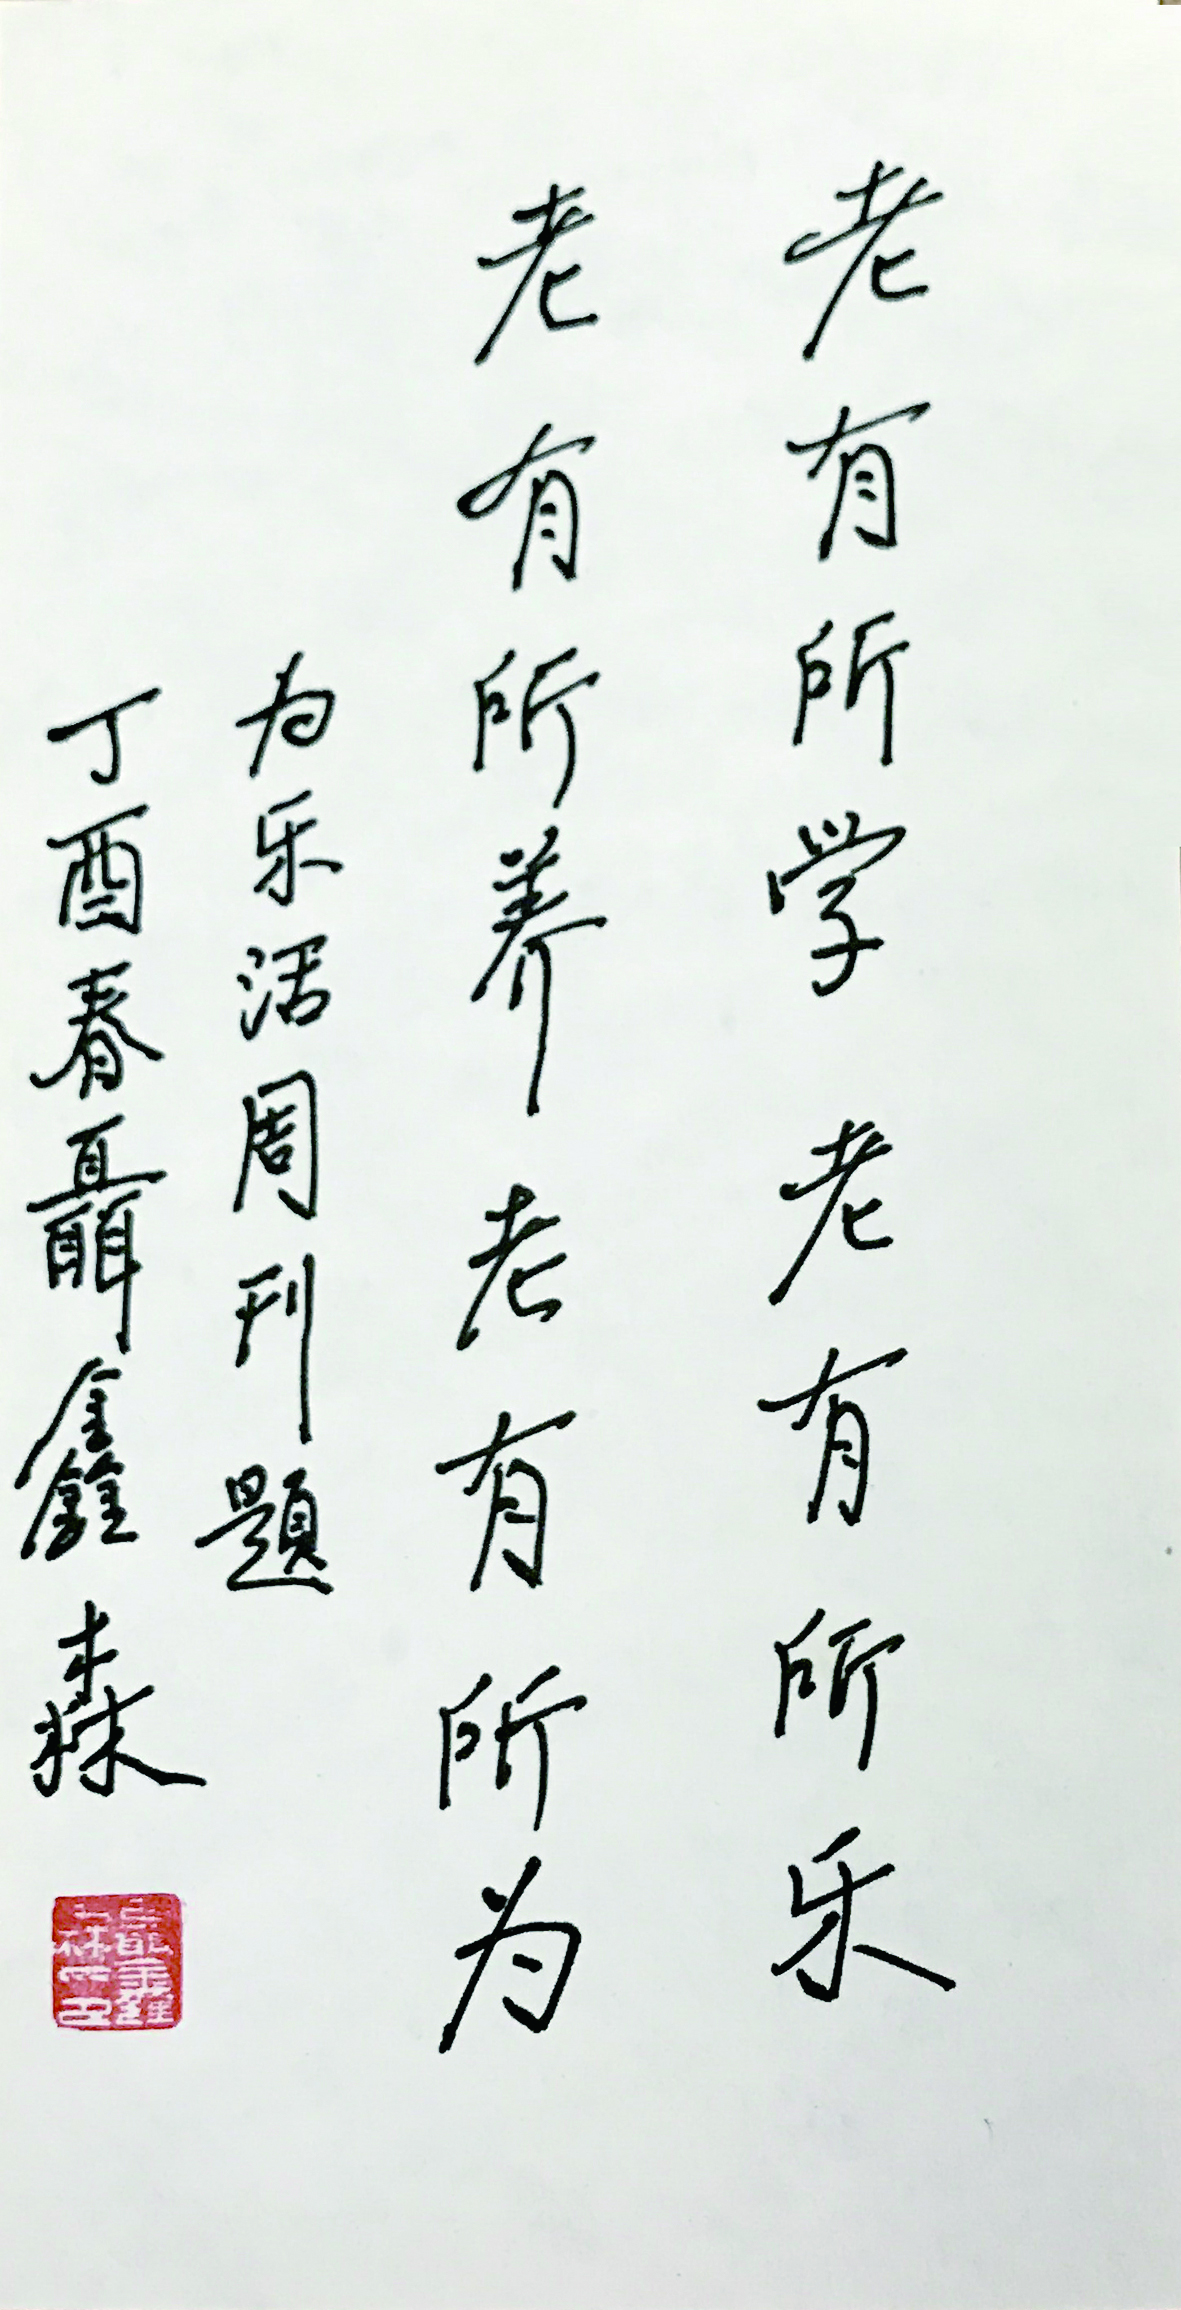 老有所学 老有所乐
老有所养 老有所为
为乐活周刊题
丁酉春聶鑫森